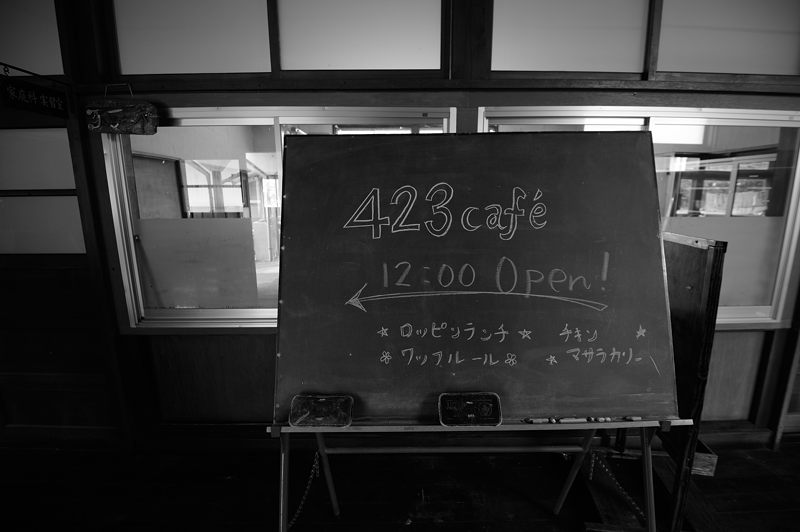 家庭科実習室
423 café
12:00 Open!
☆ロッピンランチ☆ チキン ☆
❀ワッフルール❀ ☆マサラカリー